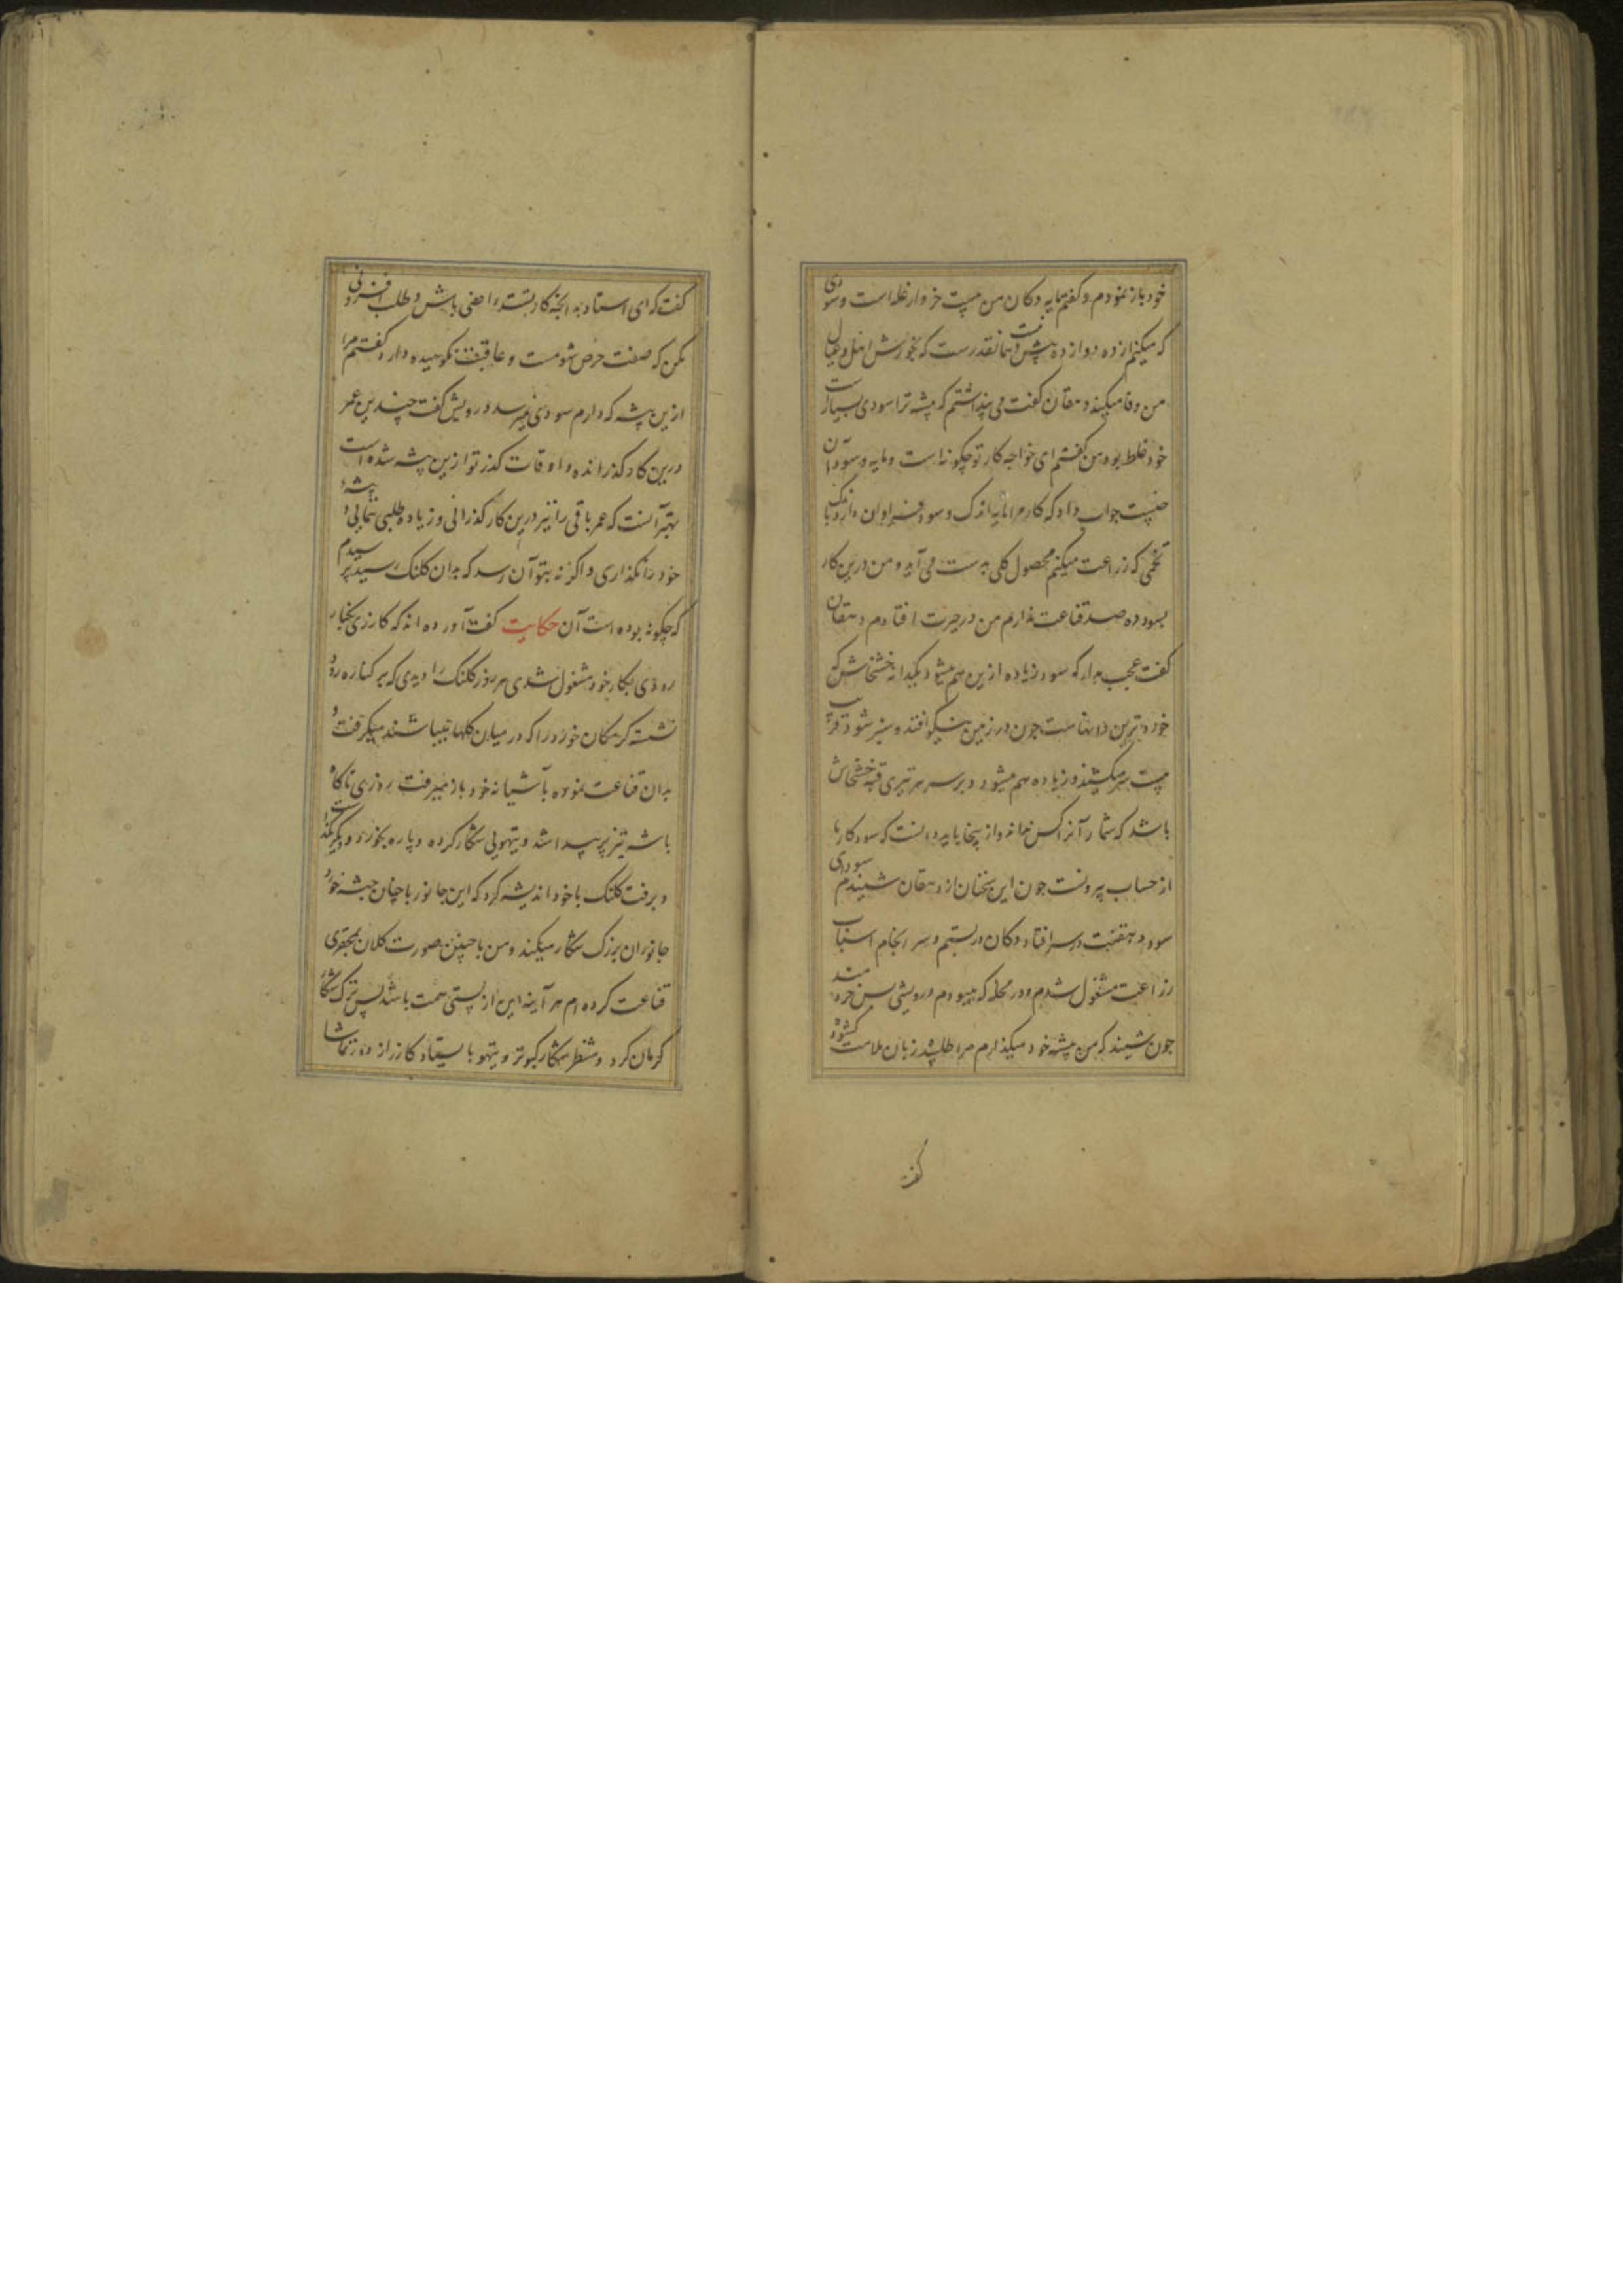 خود باز نمودم و گفتم مایه دکان من بیست خروار غله است و سودی
که میکنم از ده دوازده بیش نیست و همانقدرست که بخورش اهل و عیال
من وفا میکند دهقان گفت می پنداشتم که پیشه ترا سودی بسیارست
خود غلط بود من گفتم ای خواجه کار تو چگونه است و مایه و سود آن
چیست جواب داد که کار مرا مایه اندک و سود فراوان دارد باندک
تخمی که زراعت میکنم محصول کلی بدست می آید و من درین کار
بسود ده صد قناعت ندارم من در حیرت افتادم دهقان
گفت عجب مدار که سود زیاده ازین هم میشود یکدانه خشخاش که
خوردترین دانهاست چون در زمین نیکو افتد و سبز شود قریب
بیست تیر میکشد و زیاده هم میشود و بر سر هر تیری قبه خشخاش
باشد که شمار آنرا کس نداند و از ینجا باید دانست که سود کار ما
از حساب بیرونست چون این سخنان از دهقان شنیدم سودای
سود دهقنت در سر افتاد دکان در بستم و سر انجام اسباب
زراعت مشغول شدم و در محله که میبودم درویشی بس خردمند
چون شنید که من پیشه خود میگذارم مرا طلبید زبان ملامت گشود
گفت
گفت که ای استاد بدانچه کار تست راضی باش و طلب افزونی
مکن که صفت حرص شومست و عاقبت نکوهیده دارد گفتم مرا
ازین پیشه که دارم سودی نمیرسد درویش گفت چندین عمر
درین کار گذرانده و اوقات گذر تو ازین پیشه شده است
بهتر آنست که عمر باقی را نیز درین کار گذرانی و زیاده طلبی ننمایی و پیشه
خود را نگذاری و اگر نه بتو آن رسد که بدان کلنک رسید پرسیدم
که چگونه بوده است آن حکایت گفت آورده اند که کازری بکنار
رودی بکار خود مشغول شدی هر روز کلنک را دیدی که بر کناره رود
نشسته کرمکان خورد را که در میان گلها میباشند میگرفت و
بدان قناعت نموده بآشیانه خود باز میرفت روزی ناگاه
باشه تیز پر پیدا شد و تیهویی شکار کرده و پاره بخورد و دیگر بگذاشت
و برفت کلنک با خود اندیشه کرد که این جانور با چنان جثه خورد
جانوران بزرگ شکار میکند و من با چنین صورت کلان بمحقری
قناعت کرده ام هر آینه این از پستی همت باشد پس ترک شکار
کرمان کرد و منتظر شکار کبوتر و تیهو بایستاد کازر از دور تماشا